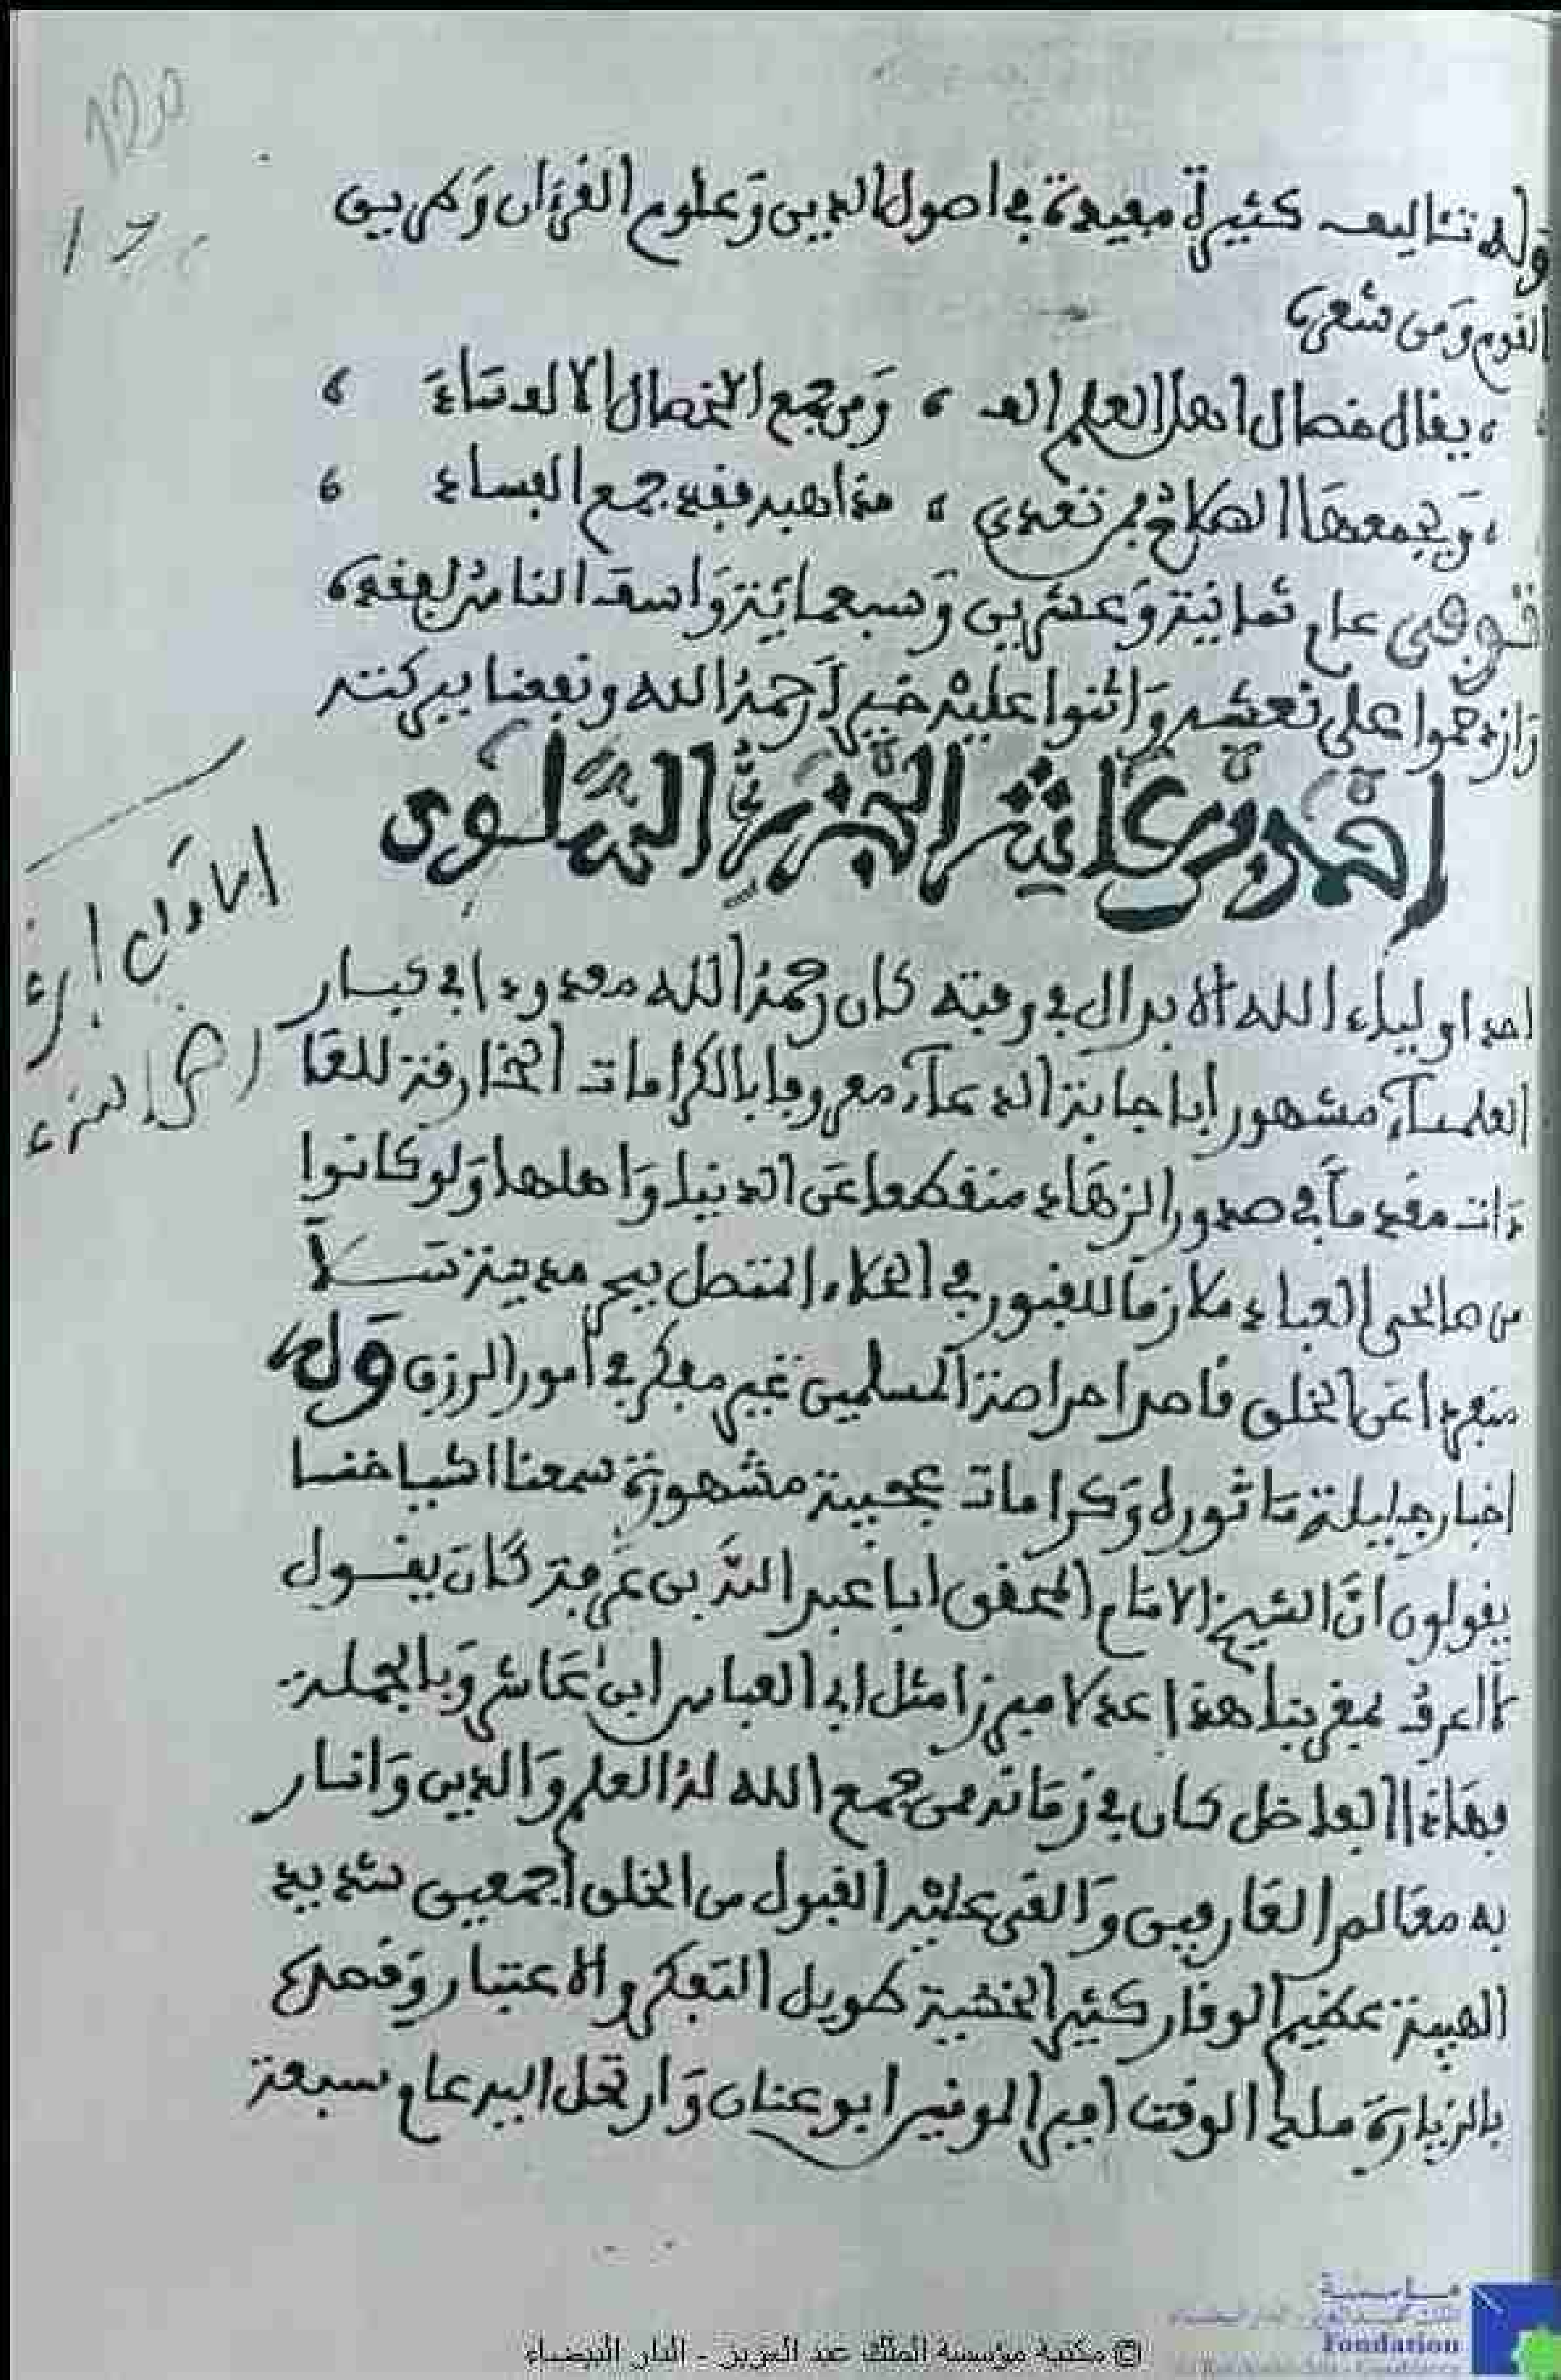 وله تئاليف كثيرة مفيدة في اصول الدين وعلوم القرءان وطريق
القوم ومن شعره
يقال خصال اهل العلم الف ومن جمع الخصال الالف ساد
ويجمعها الصلاح فمن تعدى مذاهبه فقد جمع الفساد
توفي عام ثمانية وعشرين وسبعمائة واسف الناس لفقده
وازدحموا على نعشه واثنوا عليه خيرا رحمه الله ونفعنا ببركته
احمد بن عاشر الجزيري السلوي
احد اولياء الله الابدال في وقته كان رحمه الله معدودا في كبار
العلماء مشهورا باجابة الدعاء معروفا بالكرامات الخارقة للعا
دات مقدما في صدور الزهاد منقطعا عن الدنيا واهلها ولو كانوا
من صالحي العباد ملازما للقبور في الخلاء المتصل ببحر مدينة سلا
منفردا عن الخلق قاصرا صراصة المسلمين غير مفكر في امور الرزق وله
اخبار جليلة ماثورة وكرامات عجيبة مشهورة سمعنا اشياخنا
يقولون ان الشيخ الامام المحقق ابا عبد الله بن عرفة كان يقول
ما اعرف بمغربنا هذا عدلا مبرزا مثل ابي العباس ابن عاشر وبالجملة
فهذا الفاضل كان في زمانه ممن جمع الله له العلم والدين وانار
به معالم العارفين والقى عليه القبول من الخلق اجمعين شديد
الهيبة عظيم الوقار كثير الخشية طويل التفكر والاعتبار وقصده
بالزيارة ملك الوقت امير المومنين ابو عنان وارتحل اليه عام سبعة
مؤسسة
Fondation
© مكتبة مؤسسة الملك عبد العزيز - الدار البيضاء